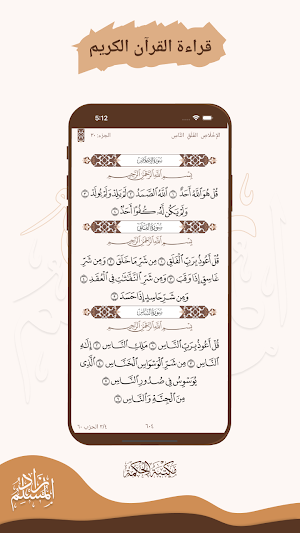 قراءة القرآن الكريم
5:12
الإخلاص الفلق الناس
الجزء: ٣٠
سورة الإخلاص
بِسْمِ اللَّهِ الرَّحْمَٰنِ الرَّحِيمِ
قُلْ هُوَ اللَّهُ أَحَدٌ ١ اللَّهُ الصَّمَدُ ٢ لَمْ يَلِدْ وَلَمْ يُولَدْ ٣
وَلَمْ يَكُن لَّهُ كُفُوًا أَحَدٌ ٤
سورة الفلق
بِسْمِ اللَّهِ الرَّحْمَٰنِ الرَّحِيمِ
قُلْ أَعُوذُ بِرَبِّ الْفَلَقِ ١ مِن شَرِّ مَا خَلَقَ ٢ وَمِن شَرِّ
غَاسِقٍ إِذَا وَقَبَ ٣ وَمِن شَرِّ النَّفَّاثَاتِ فِي الْعُقَدِ ٤
وَمِن شَرِّ حَاسِدٍ إِذَا حَسَدَ ٥
سورة الناس
بِسْمِ اللَّهِ الرَّحْمَٰنِ الرَّحِيمِ
قُلْ أَعُوذُ بِرَبِّ النَّاسِ ١ مَلِكِ النَّاسِ ٢ إِلَٰهِ
النَّاسِ ٣ مِن شَرِّ الْوَسْوَاسِ الْخَنَّاسِ ٤ الَّذِي
يُوَسْوِسُ فِي صُدُورِ النَّاسِ ٥
مِنَ الْجِنَّةِ وَالنَّاسِ ٦
٦٠٤
٣/٤ الحزب ٦٠
مكتبة الحكمة
زاد المسلم